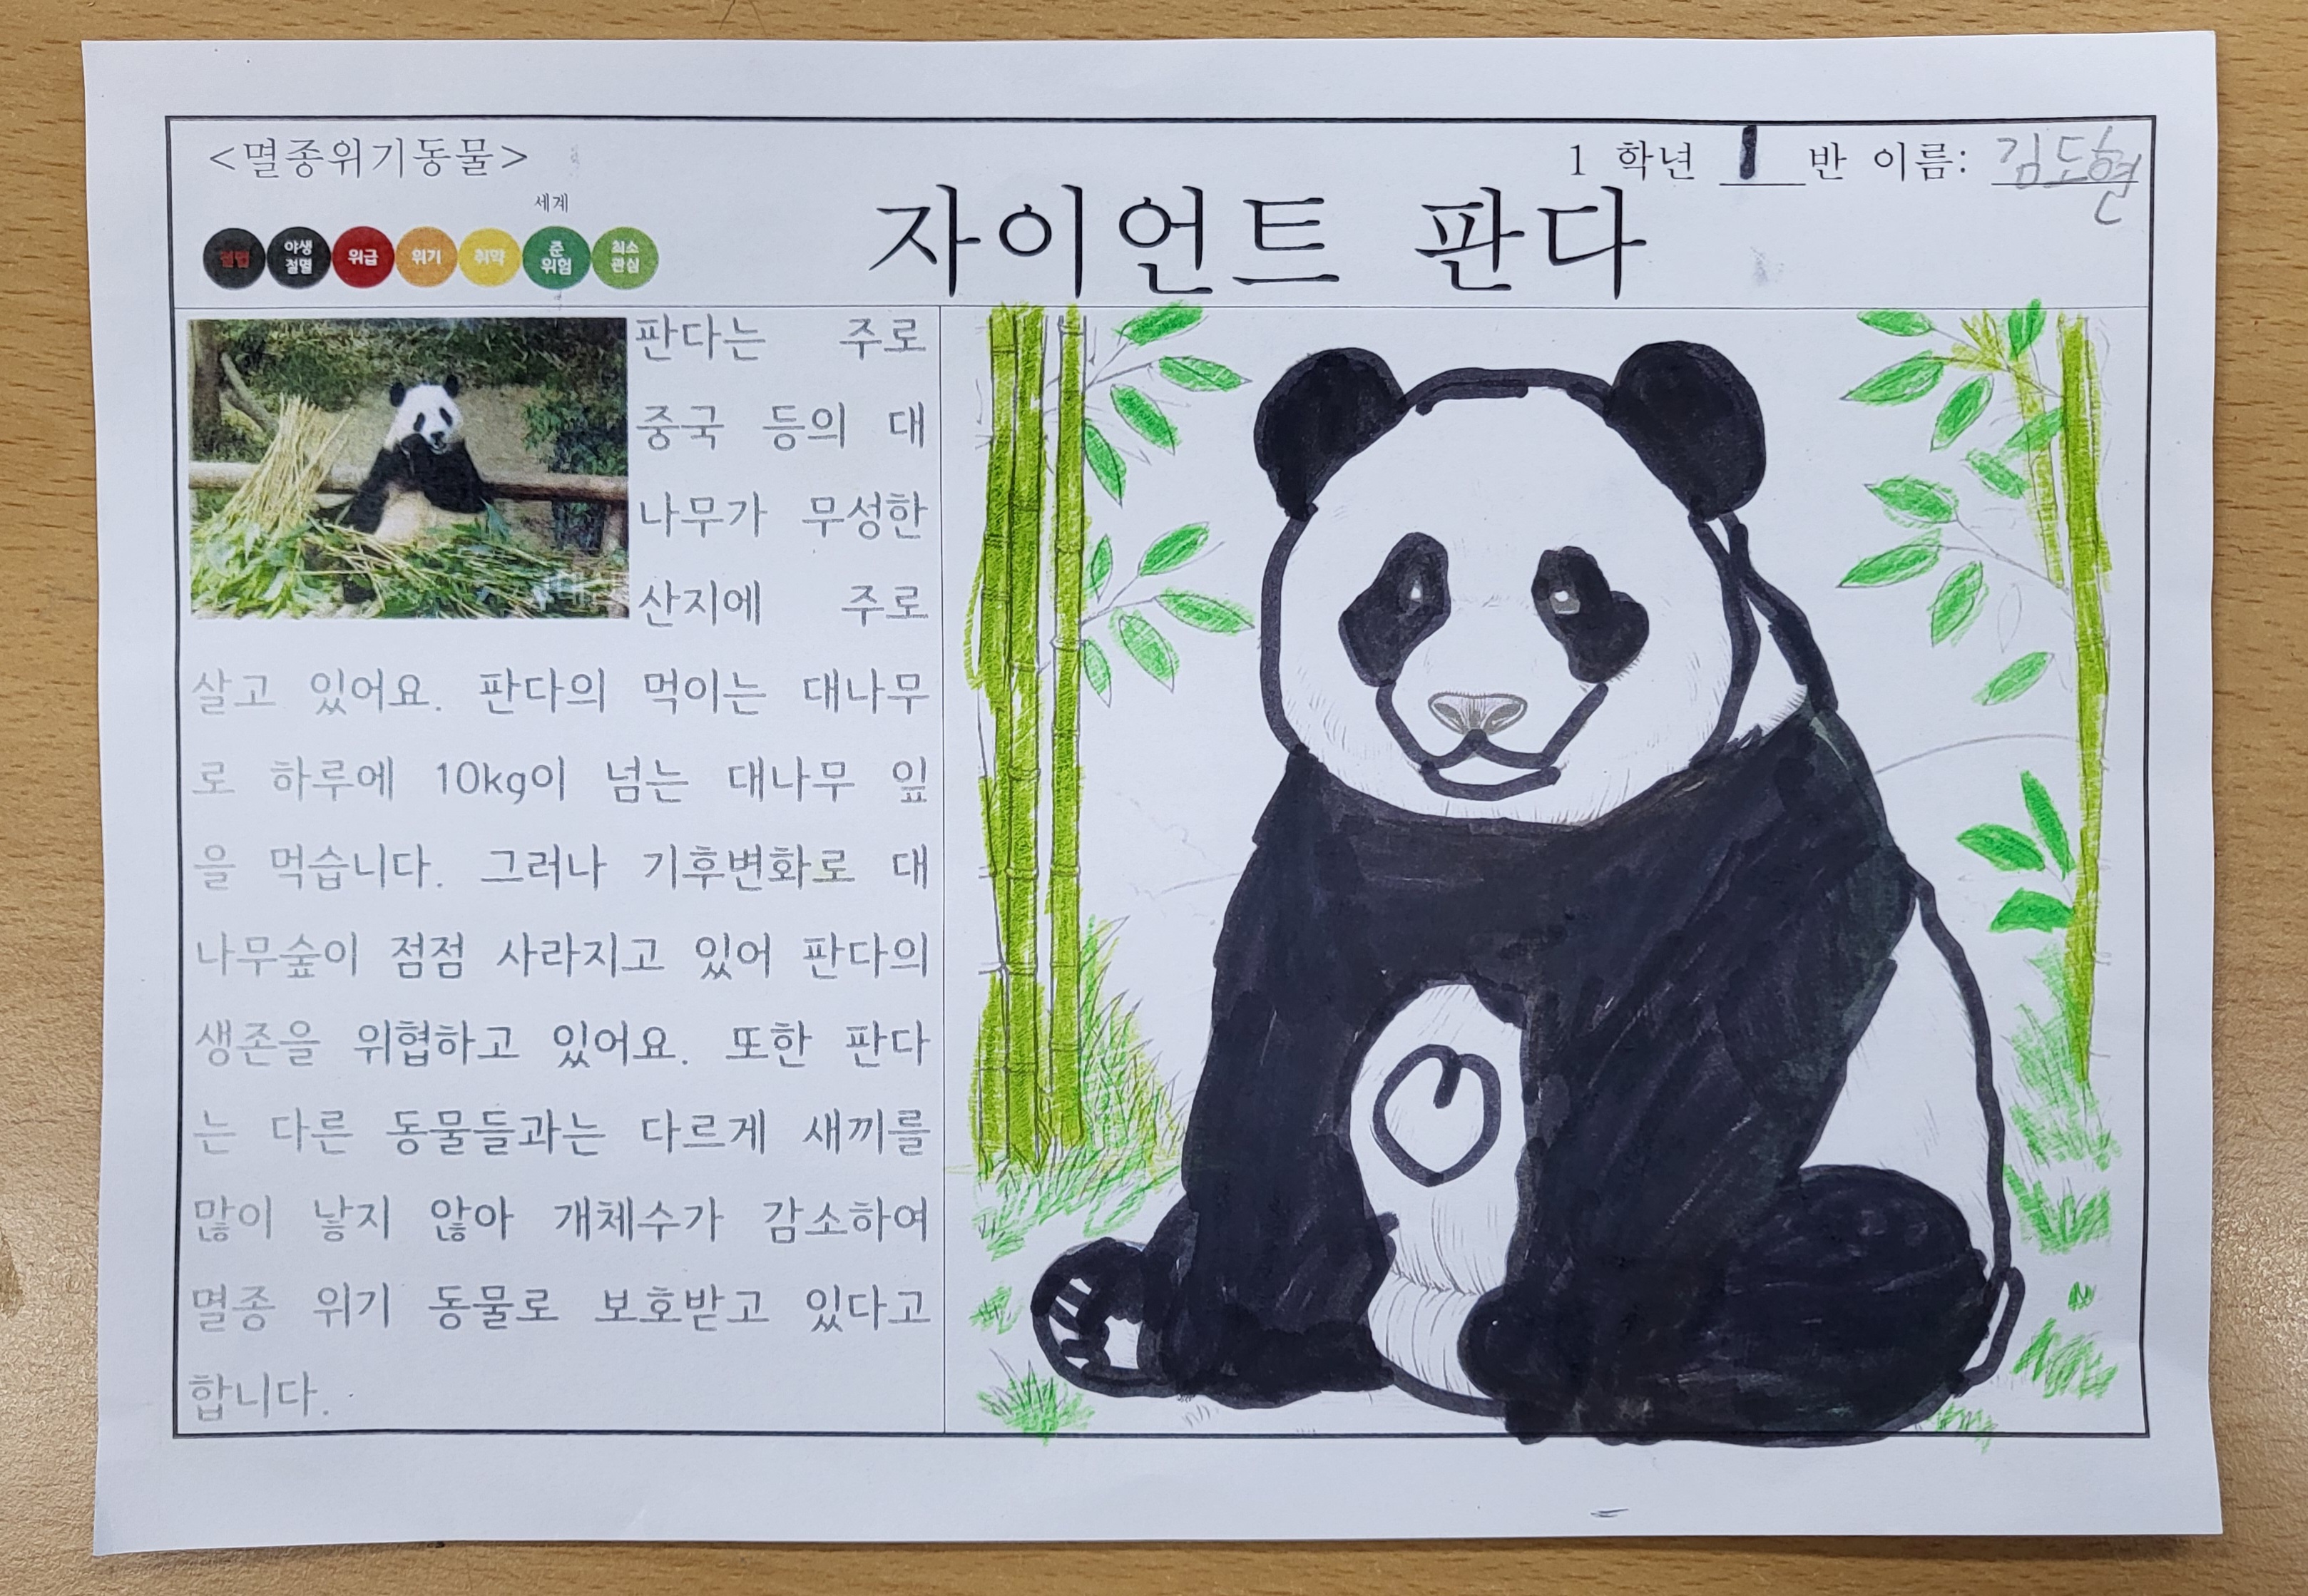 <멸종위기동물>
1 학년 1 반 이름: 김도현
세계
절멸 야생 절멸 위급 위기 취약 준 위험 최소 관심
자이언트 판다
판다는 주로
중국 등의 대
나무가 무성한
산지에 주로
살고 있어요. 판다의 먹이는 대나무
로 하루에 10kg이 넘는 대나무 잎
을 먹습니다. 그러나 기후변화로 대
나무숲이 점점 사라지고 있어 판다의
생존을 위협하고 있어요. 또한 판다
는 다른 동물들과는 다르게 새끼를
많이 낳지 않아 개체수가 감소하여
멸종 위기 동물로 보호받고 있다고
합니다.